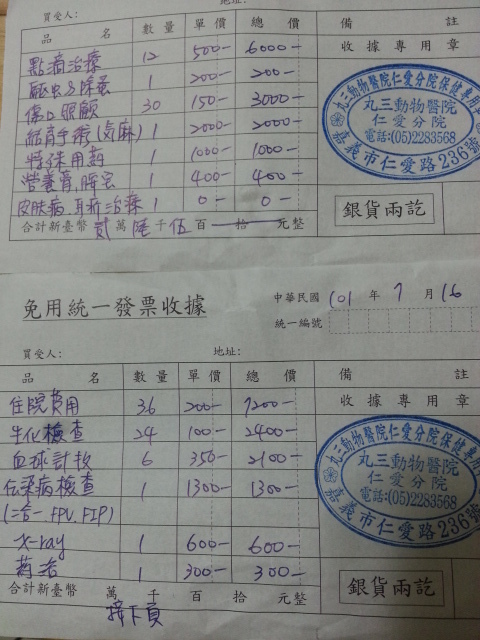 買受人： 地址：
品 名 數量 單價 總價 備 註
點滴治療 12 500- 6000-
驅虫&除蚤 1 200- 200-
傷口照顧 30 150- 3000-
結育手術(氣麻) 1 2000- 2000-
特殊用葯 1 1000- 1000-
營養膏.罐 1 400- 400-
皮膚病.耳疥治療 1 0- 0-
合計新臺幣 貳 萬 陸 千 伍 百 — 拾 元整
收據專用章
丸三動物醫院仁愛分院保健專用
丸三動物醫院
仁愛分院
電話:(05)2283568
嘉義市仁愛路236號
銀貨兩訖
免用統一發票收據
中華民國 101 年 7 月 16
統一編號
買受人： 地址：
品 名 數量 單價 總價 備 註
住院費用 36 200- 7200-
生化檢查 24 100- 2400-
血球計數 6 350- 2100-
傳染病檢查 1 1300- 1300-
(二合一 FPV. FIP)
X-ray 1 600- 600-
葯浴 1 300- 300-
合計新臺幣 萬 千 百 拾 元整
接下頁
收據專用章
丸三動物醫院仁愛分院保健專用
丸三動物醫院
仁愛分院
電話:(05)2283568
嘉義市仁愛路236號
銀貨兩訖